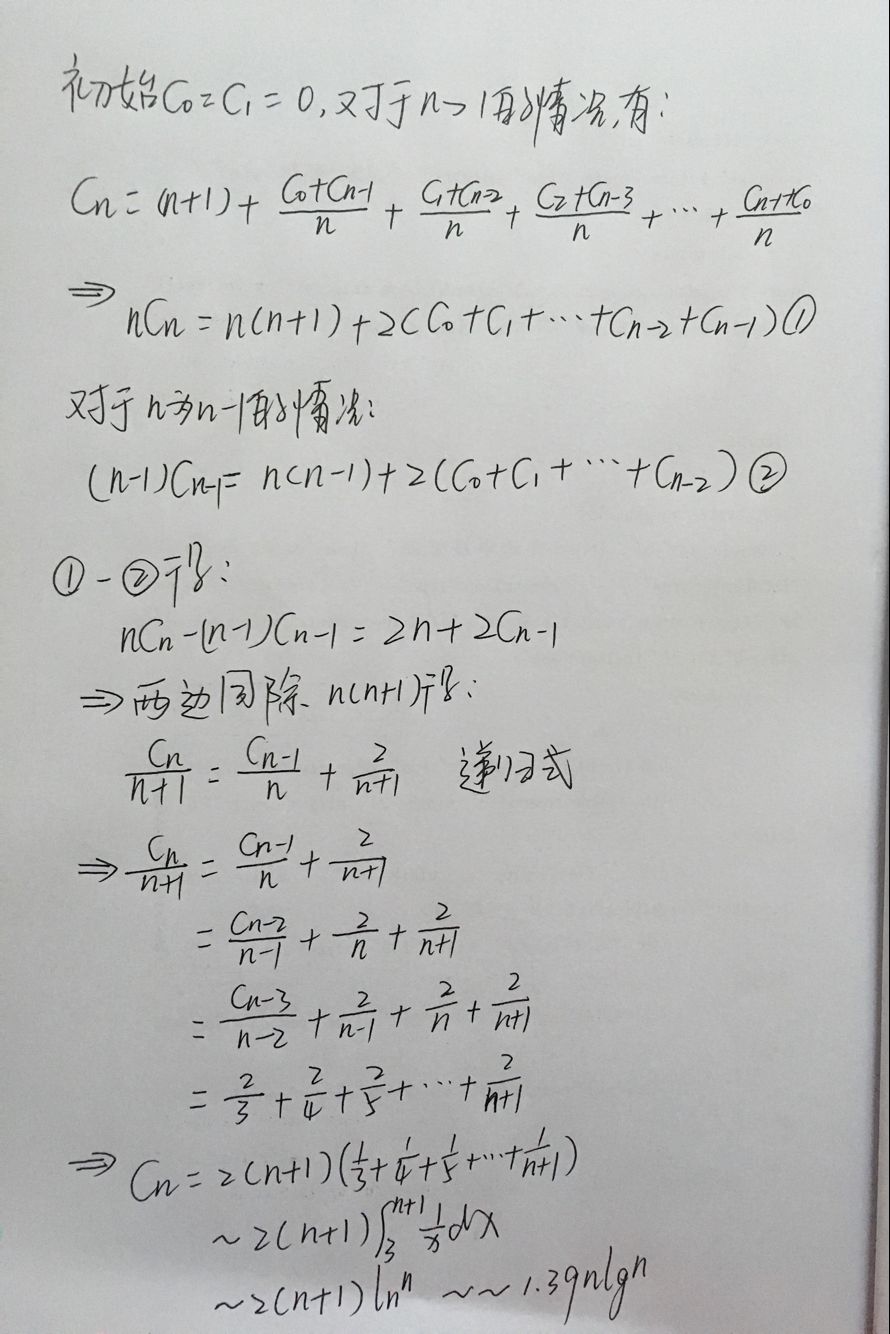 初始C₀=C₁=0,对于n>1的情况,有:
Cn = (n+1) + (C₀+Cn-1)/n + (C₁+Cn-2)/n + (C₂+Cn-3)/n + ⋯ + (Cn-1+C₀)/n
⇒ nCn = n(n+1)+2(C₀+C₁+⋯+Cn-2+Cn-1) ①
对于n为n-1的情况:
(n-1)Cn-1 = n(n-1)+2(C₀+C₁+⋯+Cn-2) ②
①-②得:
nCn-(n-1)Cn-1 = 2n+2Cn-1
⇒ 两边同除n(n+1)得:
Cn/(n+1) = Cn-1/n + 2/(n+1) 递归式
⇒ Cn/(n+1) = Cn-1/n + 2/(n+1)
= Cn-2/(n-1) + 2/n + 2/(n+1)
= Cn-3/(n-2) + 2/(n-1) + 2/n + 2/(n+1)
= 2/3 + 2/4 + 2/5 + ⋯ + 2/(n+1)
⇒ Cn = 2(n+1)(1/3+1/4+1/5+⋯+1/(n+1))
~2(n+1)∫₃ⁿ⁺¹ 1/x dx
~2(n+1)lnⁿ ~~1.39nlgⁿ